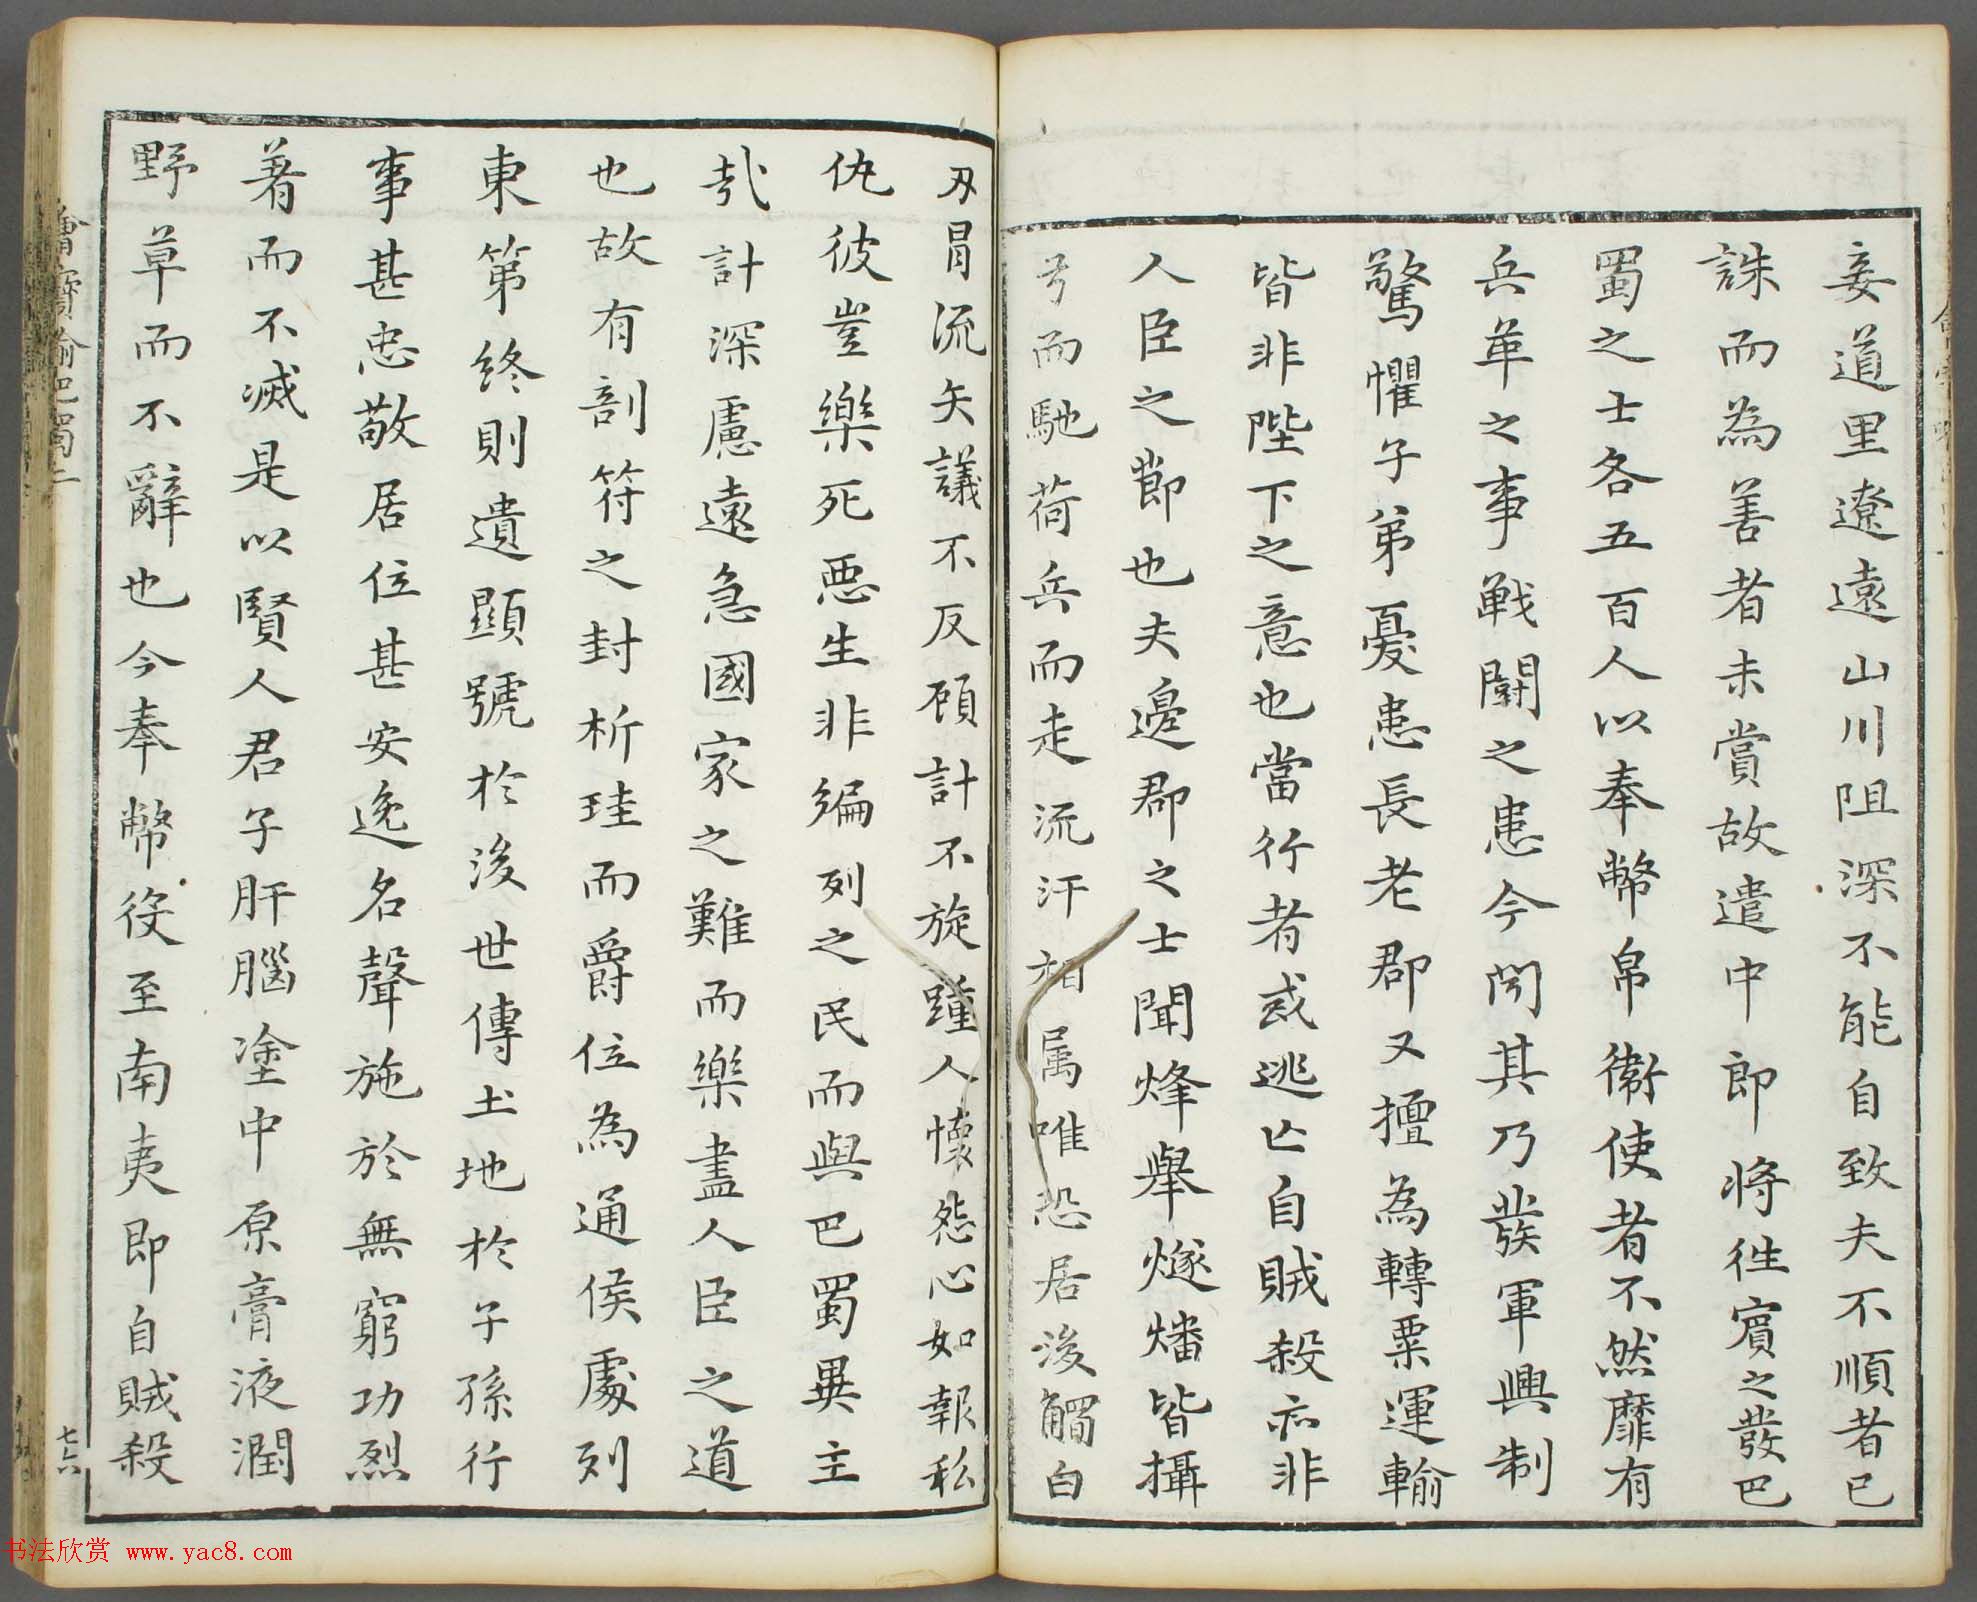 妾道里遼遠山川阻深不能自致夫不順者已
誅而為善者未賞故遣中郎將徃賓之發巴
蜀之士各五百人以奉幣帛衛使者不然靡有
兵革之事戰鬭之患今聞其乃發軍興制
驚懼子弟憂患長老郡又擅為轉粟運輸
皆非陛下之意也當行者或逃亡自賊殺亦非
人臣之節也夫邊郡之士聞烽舉燧燔皆攝
弓而馳荷兵而走流汗相属唯恐居後觸白
刃冒流矢議不反顧計不旋踵人懷怨心如報私
仇彼豈樂死惡生非編列之民而與巴蜀異主
哉計深慮遠急國家之難而樂盡人臣之道
也故有剖符之封析珪而爵位為通侯處列
東第終則遺顯號於後世傳土地於子孫行
事甚忠敬居位甚安逸名聲施於無窮功烈
著而不滅是以賢人君子肝腦塗中原膏液潤
野草而不辭也今奉幣役至南夷即自賊殺
喻巴蜀二
七六
书法欣赏 www.yac8.com